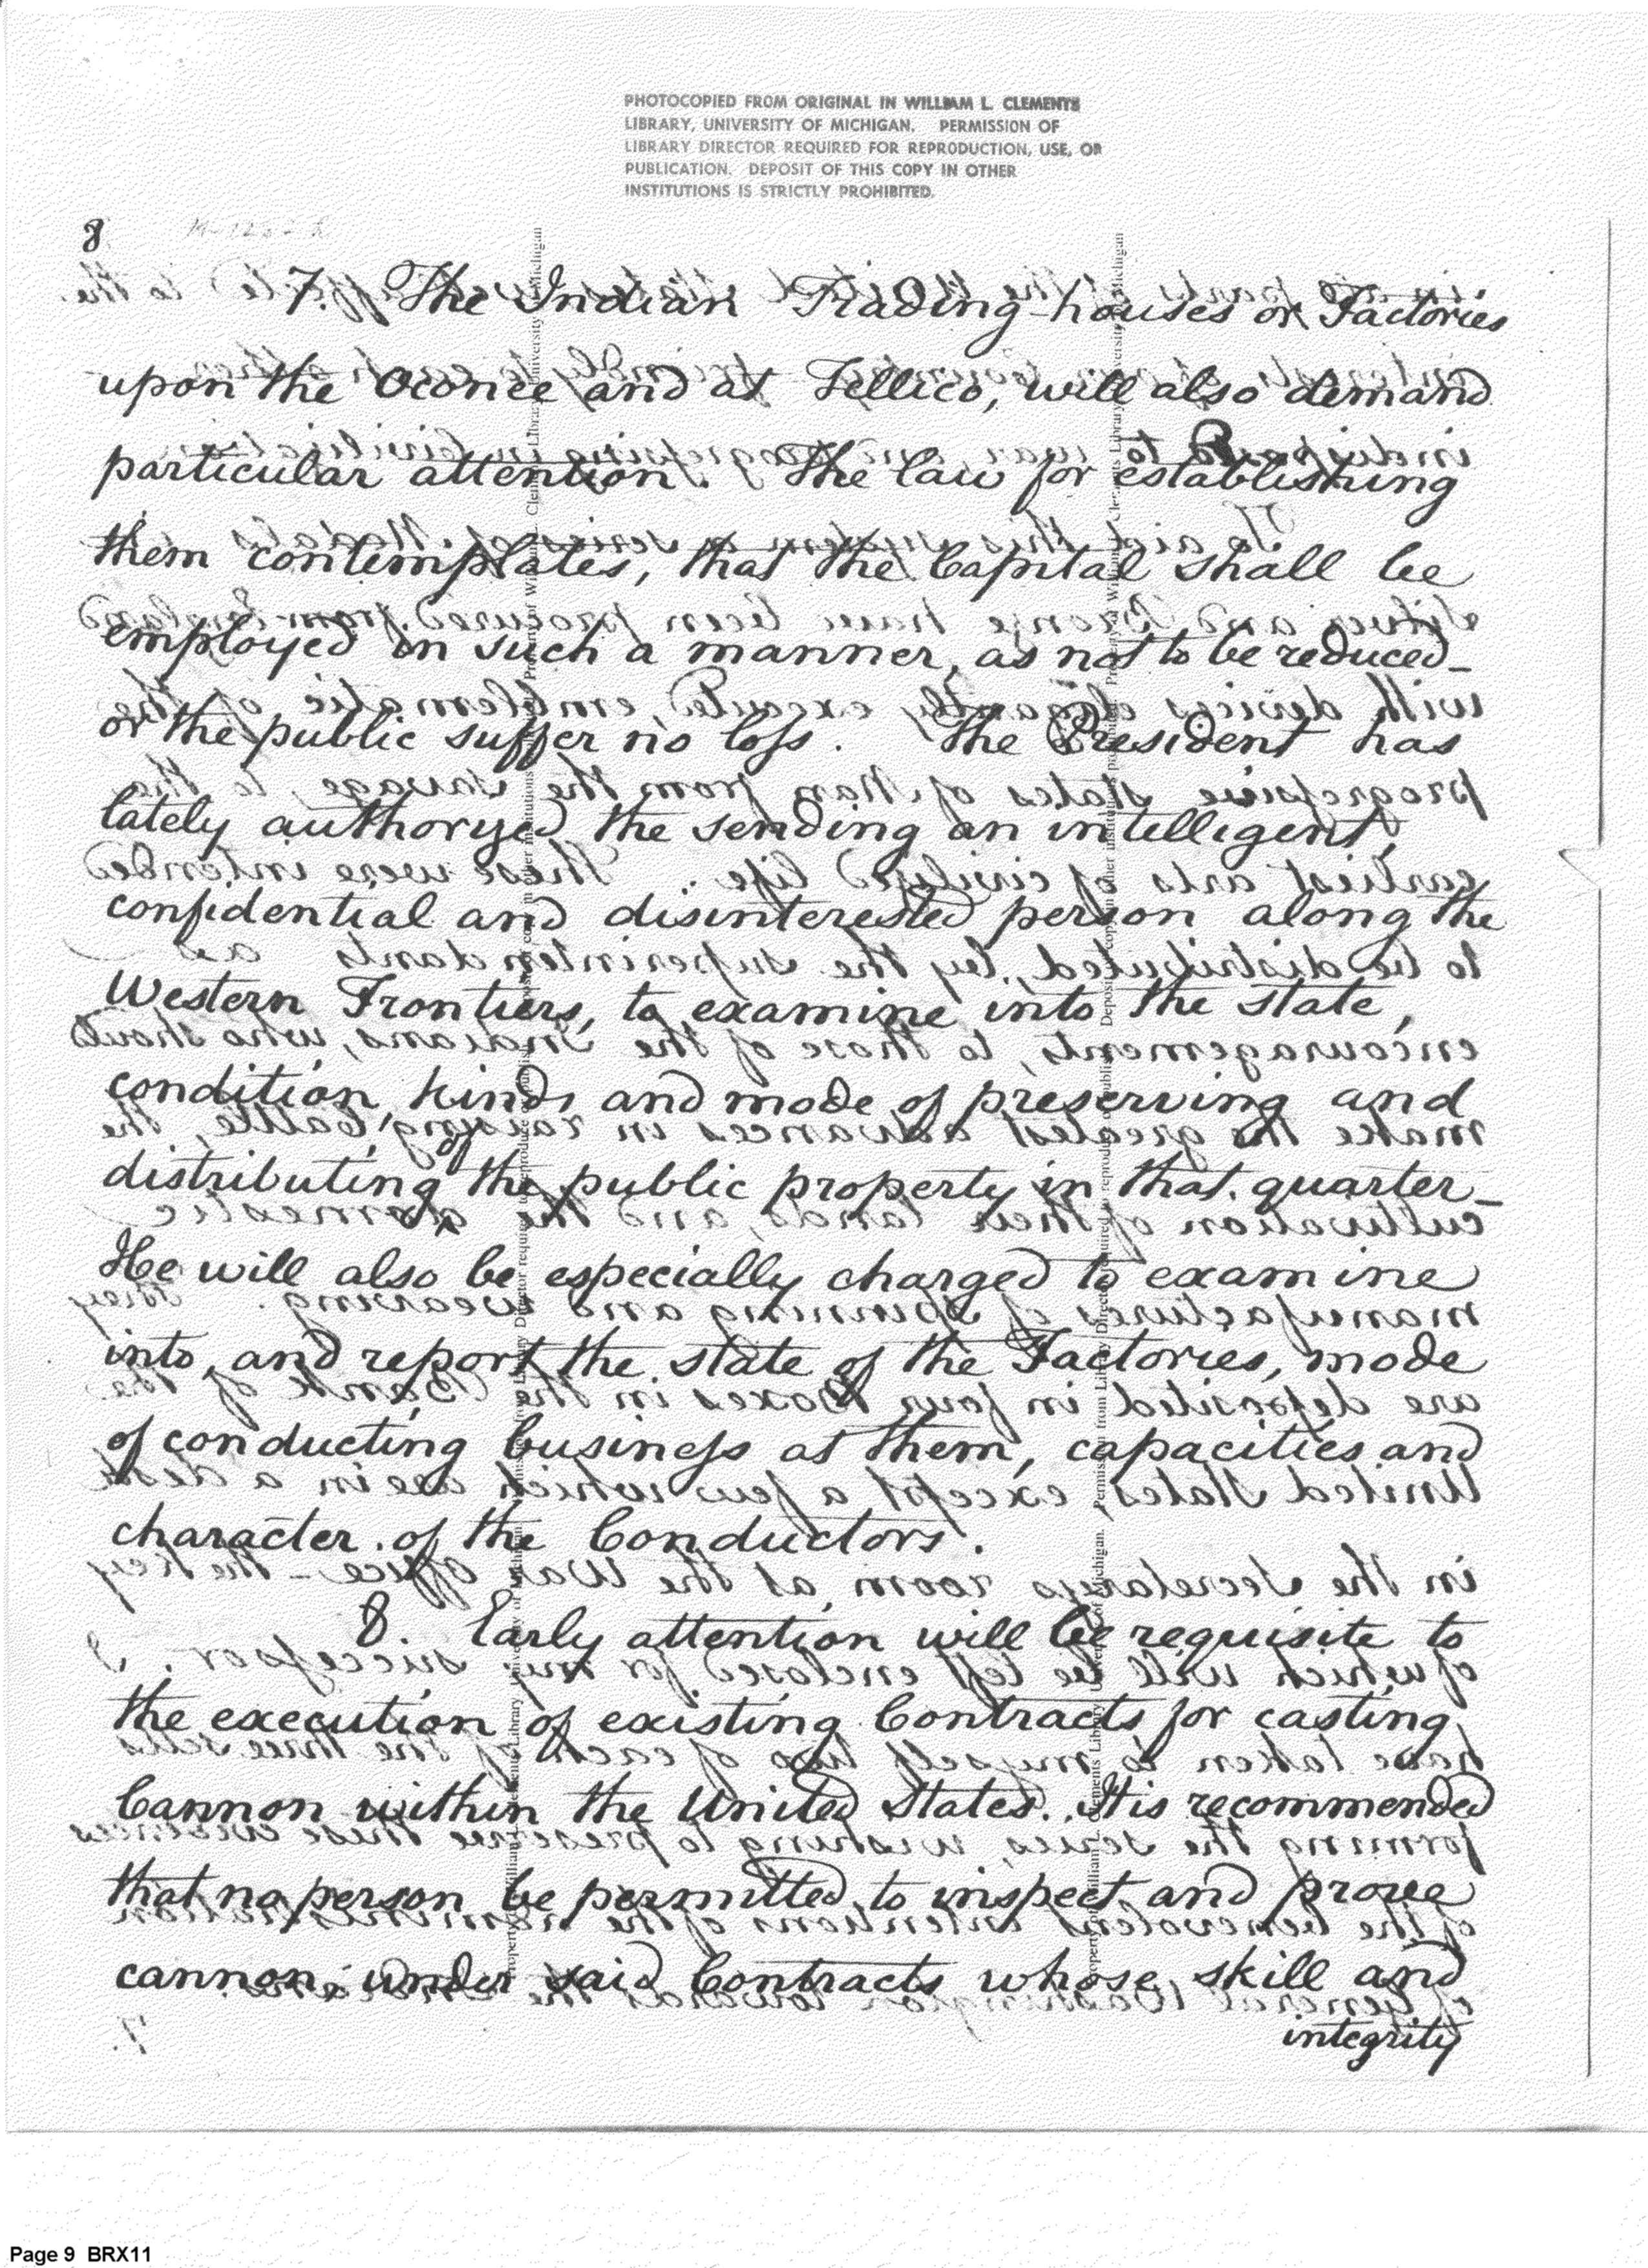 PHOTOCOPIED FROM ORIGINAL IN WILLIAM L. CLEMENTS
LIBRARY, UNIVERSITY OF MICHIGAN. PERMISSION OF
LIBRARY DIRECTOR REQUIRED FOR REPRODUCTION, USE, OR
PUBLICATION. DEPOSIT OF THIS COPY IN OTHER
INSTITUTIONS IS STRICTLY PROHIBITED.
8
7. The Indian Trading-houses or Factories
upon the Oconee and at Tellico, will also demand
particular attention. The law for establishing
them contemplates, that the Capital shall be
employed in such a manner, as not to be reduced_
or the public suffer no loss. The President has
lately authoryed the sending an intelligent,
confidential and disinterested person along the
Western Frontiers, to examine into the state,
condition, kinds and mode of preserving and
distributing the public property in that quarter_
He will also be especially charged to examine
into, and report the state of the Factories, mode
of conducting business at them, capacities and
character of the Conductors.
8. Early attention will be requisite to
the execution of existing Contracts for casting
Cannon within the United States. It is recommended
that no person be permitted to inspect and prove
cannon, under said Contracts whose skill and
integrity
Page 9 BRX11